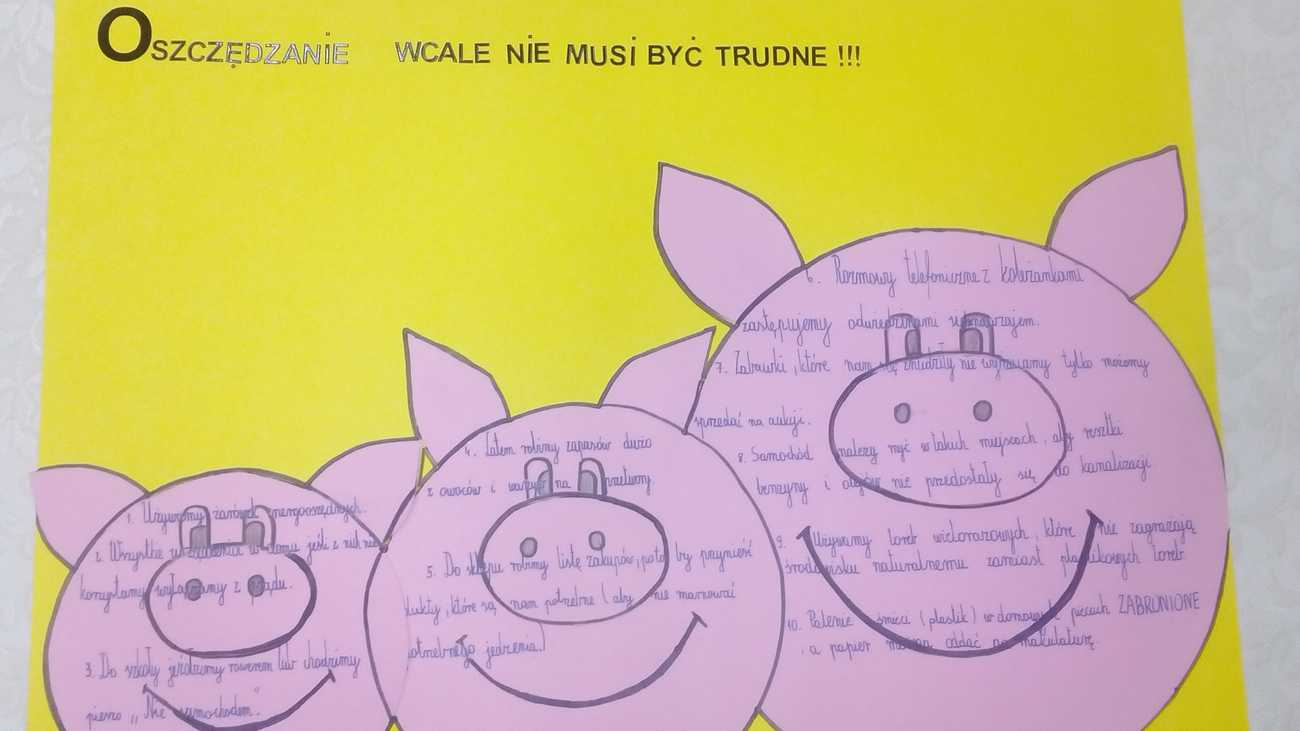 OSZCZĘDZANIE WCALE NIE MUSI BYĆ TRUDNE !!!
1. Używamy żarówek energooszczędnych.
2. Wszystkie urządzenia w domu jeśli z nich nie
korzystamy wyłączamy z prądu.
3. Do szkoły jeździmy rowerem lub chodzimy
pieszo „Nie samochodem."
4. Latem robimy zapasów dużo
z owoców i warzyw na przetwory.
5. Do sklepu robimy listę zakupów, poto by przynieść
dukty, które są nam potrzebne (aby nie marnować
potrzebnego jedzenia.)
6. Rozmowy telefoniczne z koleżankami
zastępujemy odwiedzinami
7. Zabawki, które nam się znudziły nie wyrzucamy tylko możemy
sprzedać na aukcji.
8. Samochód należy myć w takich miejscach, aby resztki
benzyny i olejów nie przedostały się do kanalizacji
9. Używamy toreb wielorazowych, które nie zagrażają
środowisku naturalnemu zamiast plastikowych toreb.
10. Palenie śmieci (plastik) w domowych piecach ZABRONIONE
, a papier można oddać na makulaturę.